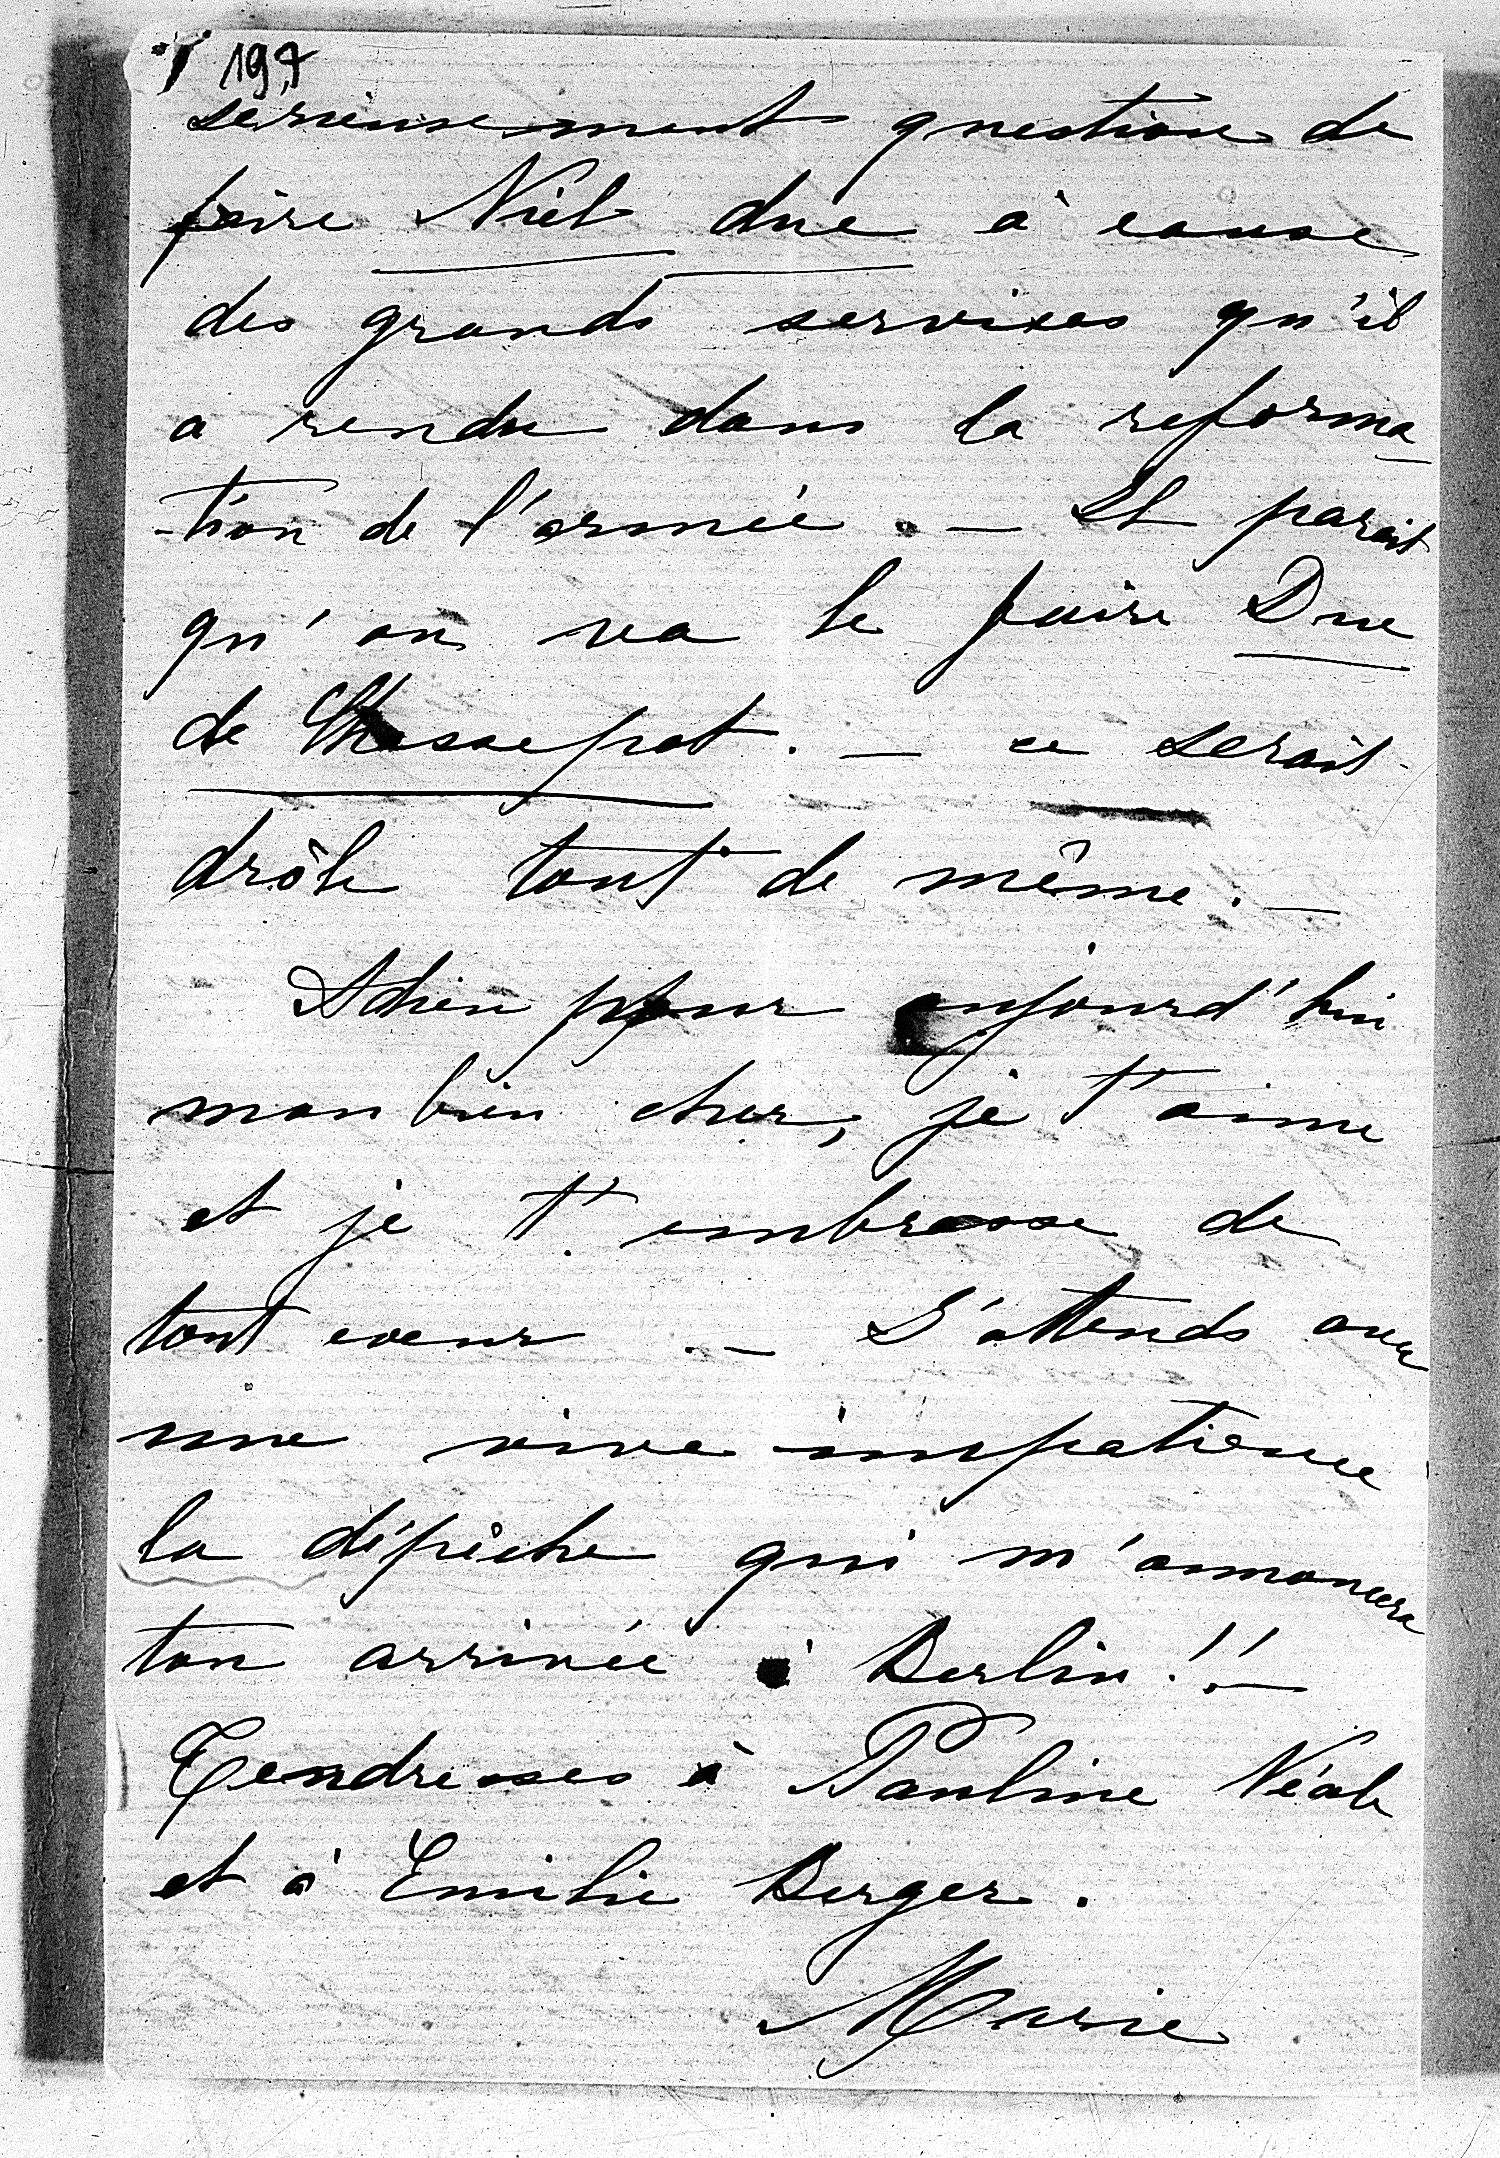 197
serieusement question de
faire Niel duc à cause
des grands services qu'il
a rendu dans la reforma
-tion de l'armée. — Il parait
qu'on va le faire Duc
de Chassepot. — ce serait
drôle tout de même. —
Adieu pour aujourd'hui
mon bien cher, je t'aime
et je t'embrasse de
tout coeur. — J'attends avec
une vive impatience
la dépêche qui m'annoncera
ton arrivée à Berlin!! —
Tendresses à Pauline Néale
et à Emilie Berger.
Marie